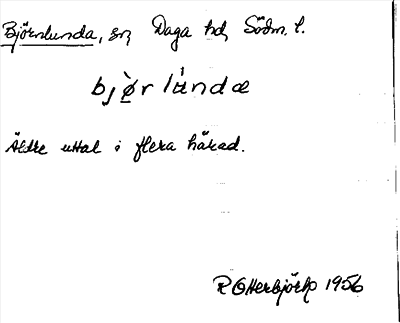 Björnlunda, sn, Daga hd, Södm. l.
bjø̀r lúndæ
Äldre uttal i flera härad.
R Otterbjörk 1956